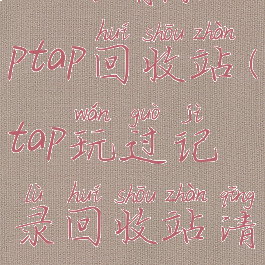 huí shōu zhàn
ptap回收站(
wán guò jì
tap玩过记
lù huí shōu zhàn qīng
录回收站清